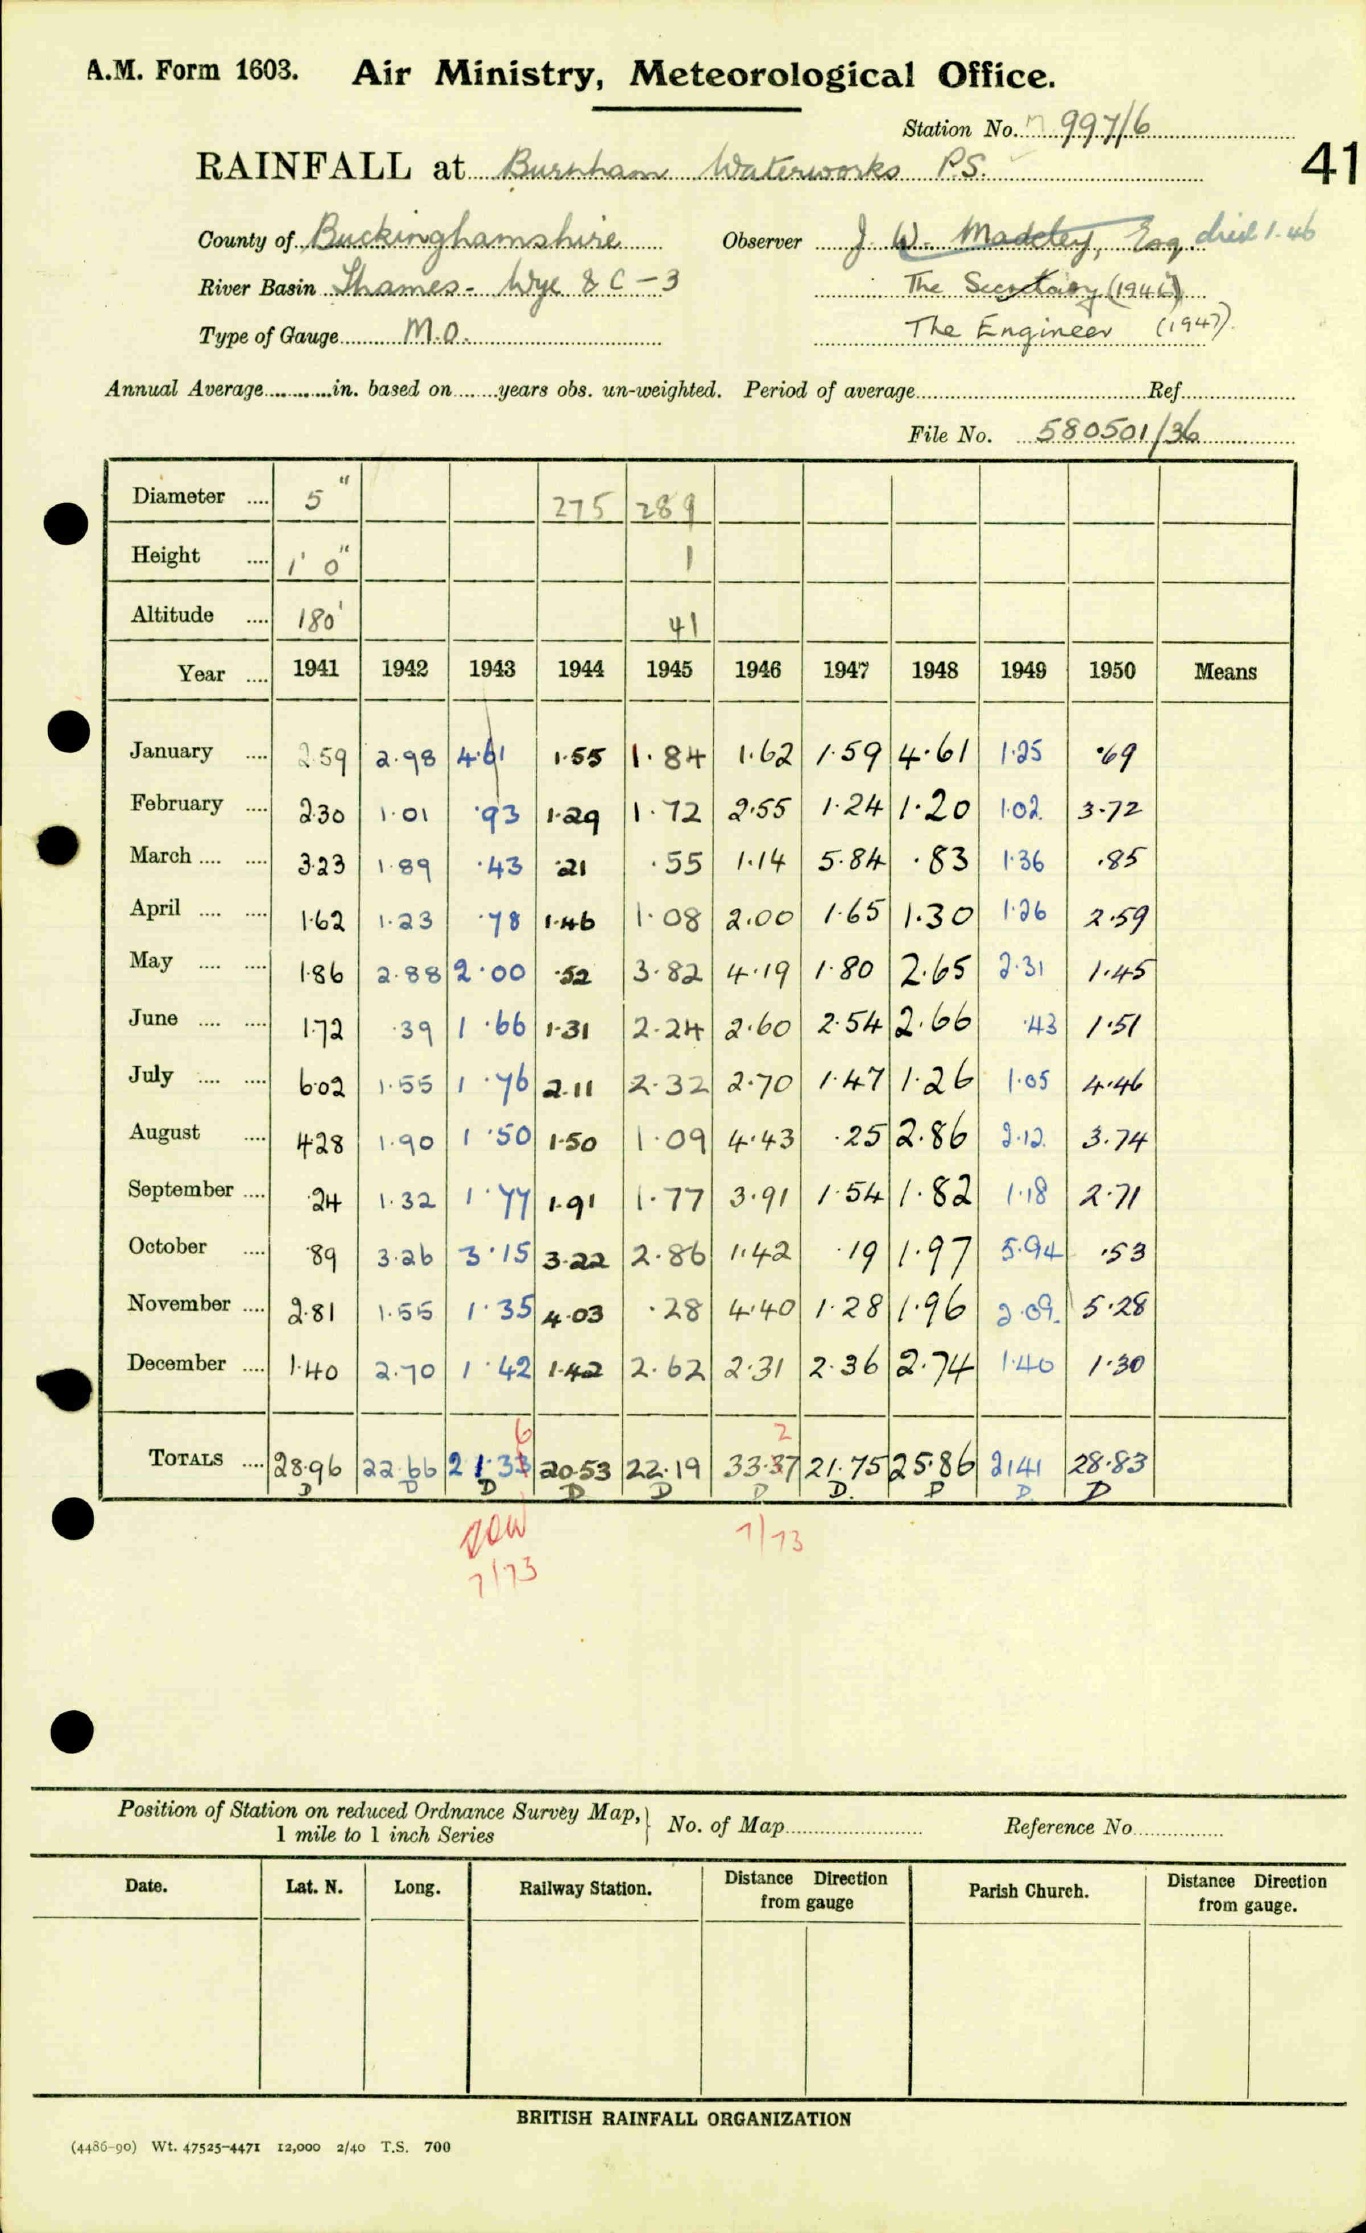 A.M. Form 1603. Air Ministry, Meteorological Office.
Station No. 997/6
41
RAINFALL at Burnham Waterworks P.S.
County of Buckinghamshire Observer J. W. Madeley, Esq. died 1.46
River Basin Thames - Wye & C - 3 The Secretary (1946)
Type of Gauge M.O. The Engineer (1947).
Annual Average............in. based on........years obs. un-weighted. Period of average Ref.
File No. 580501/36
Diameter .... 5" 275 289
Height .... 1' 0" 1
Altitude .... 180' 41
Year .... 1941 1942 1943 1944 1945 1946 1947 1948 1949 1950 Means
January .... 2.59 2.98 4.61 1.55 1.84 1.62 1.59 4.61 1.25 .69
February .... 2.30 1.01 .93 1.29 1.72 2.55 1.24 1.20 1.02 3.72
March .... .... 3.23 1.89 .43 .21 .55 1.14 5.84 .83 1.36 .85
April .... .... 1.62 1.23 .78 1.46 1.08 2.00 1.65 1.30 1.26 2.59
May .... .... 1.86 2.88 2.00 .52 3.82 4.19 1.80 2.65 2.31 1.45
June .... .... 1.72 .39 1.66 1.31 2.24 2.60 2.54 2.66 .43 1.51
July .... .... 6.02 1.55 1.76 2.11 2.32 2.70 1.47 1.26 1.05 4.46
August .... 4.28 1.90 1.50 1.50 1.09 4.43 .25 2.86 2.12 3.74
September .... .24 1.32 1.77 1.91 1.77 3.91 1.54 1.82 1.18 2.71
October .... .89 3.26 3.15 3.22 2.86 1.42 .19 1.97 5.94 .53
November .... 2.81 1.55 1.35 4.03 .28 4.40 1.28 1.96 2.09 5.28
December .... 1.40 2.70 1.42 1.42 2.62 2.31 2.36 2.74 1.40 1.30
6 2
TOTALS .... 28.96 22.66 21.33 20.53 22.19 33.37 21.75 25.86 21.41 28.83
D D D D D D D. D D. D
7/73
7/73
Position of Station on reduced Ordnance Survey Map, 1 mile to 1 inch Series } No. of Map Reference No
Date. Lat. N. Long. Railway Station. Distance Direction from gauge Parish Church. Distance Direction from gauge.
BRITISH RAINFALL ORGANIZATION
(4486-90) Wt. 47525-4471 12,000 2/40 T.S. 700